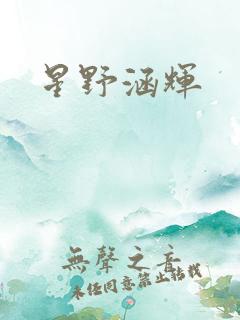 星野涵輝
無聲之音
未經同意禁止轉載